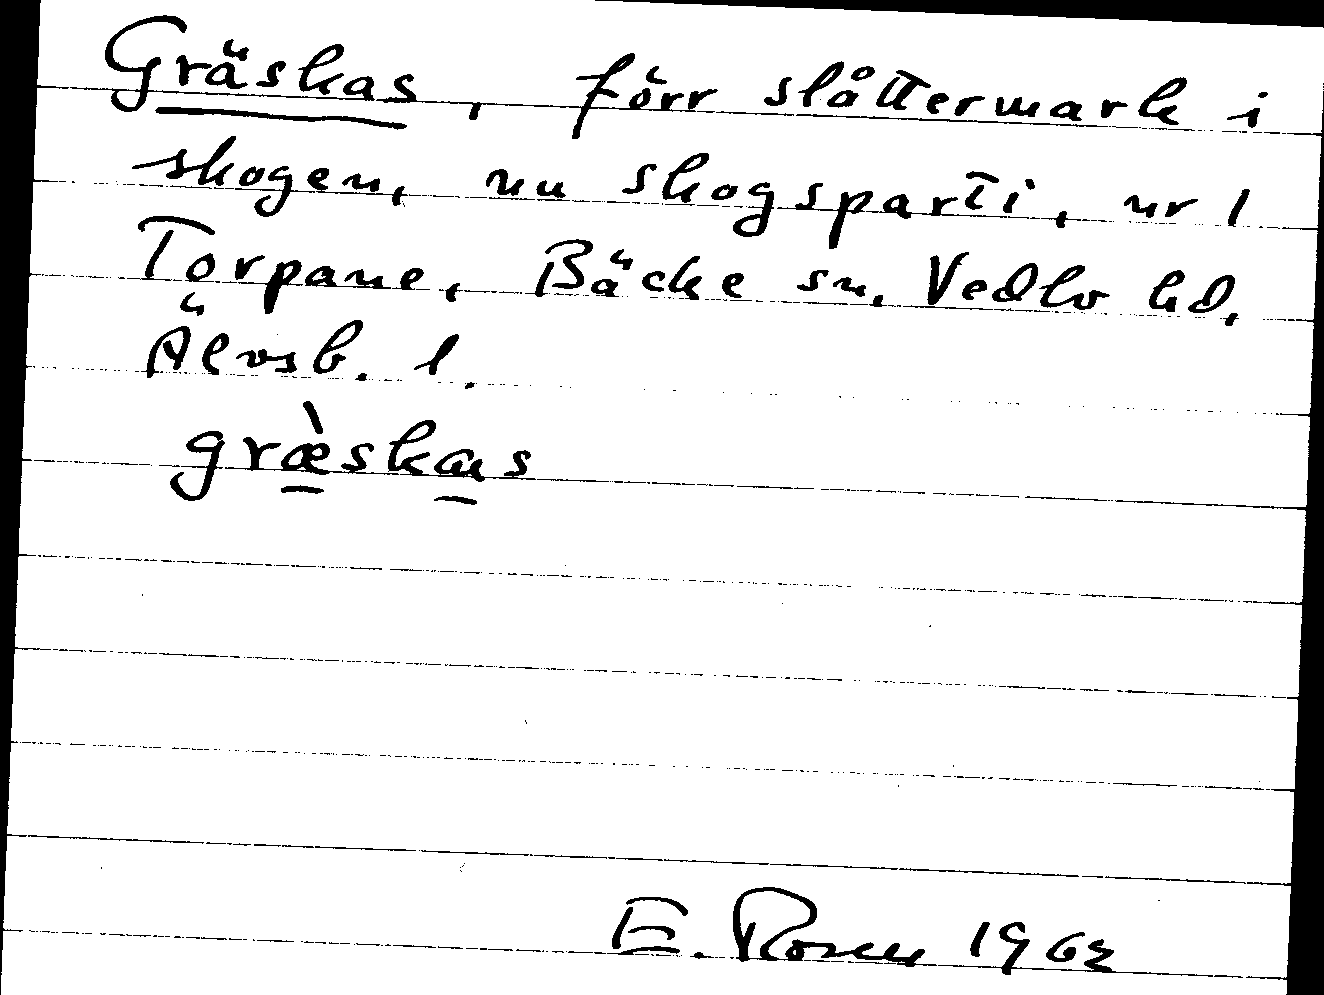 Gräskas, förr slåttermark i
skogen, nu skogsparti, nr 1
Torpane, Bäcke sn, Vedbo hd,
Älvsb. l.
græ̀skas
E. Rosen 1962